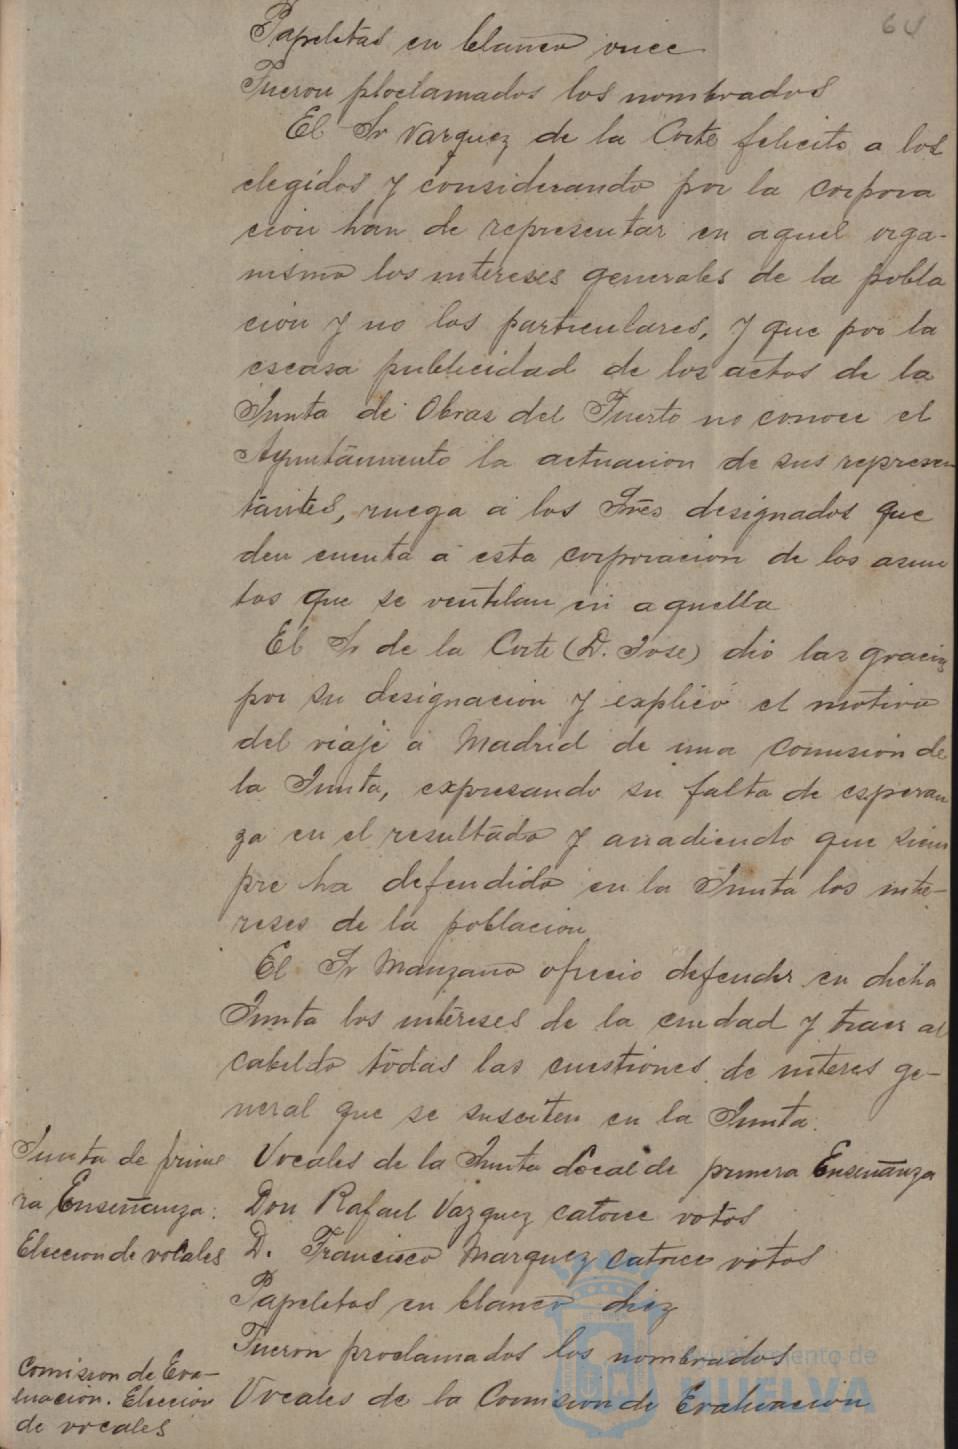 64
Papeletas en blanco once
Fueron ploclamados los nombrados
El Sr Vazquez de la Corte felicito a los
elegidos y considerando por la corpora
cion han de representar en aquel orga-
nismo los intereses generales de la pobla
cion y no los particulares, y que por la
escasa publicidad de los actos de la
Junta de Obras del Puerto no conoce el
Ayuntamiento la actuacion de sus represen
tantes, ruega a los Sres designados que
den cuenta a esta corporacion de los asun
tos que se ventilan en aquella
El Sr de la Corte (D. Jose) dió las gracias
por su designacion y explicó el motivo
del viaje a Madrid de una comision de
la Junta, expresando su falta de esperan
za en el resultado y anadiendo que siem
pre ha defendido en la Junta los inte-
reses de la poblacion
El Sr Manzano ofrecio defender en dicha
Junta los intereses de la ciudad y traer al
cabildo todas las cuestiones de interes ge-
neral que se susciten en la Junta.
Junta de prime
ra Enseñanza.
Eleccion de vocales
Vocales de la Junta Local de primera Enseñanza
Don Rafael Vazquez catorce votos
D. Francisco Marquez catorce votos
Papeletas en blanco diez
Fueron proclamados los nombrados
Comision de Eva-
luacion. Eleccion
de vocales
Vocales de la Comision de Evaluacion
Ayuntamiento de
HUELVA